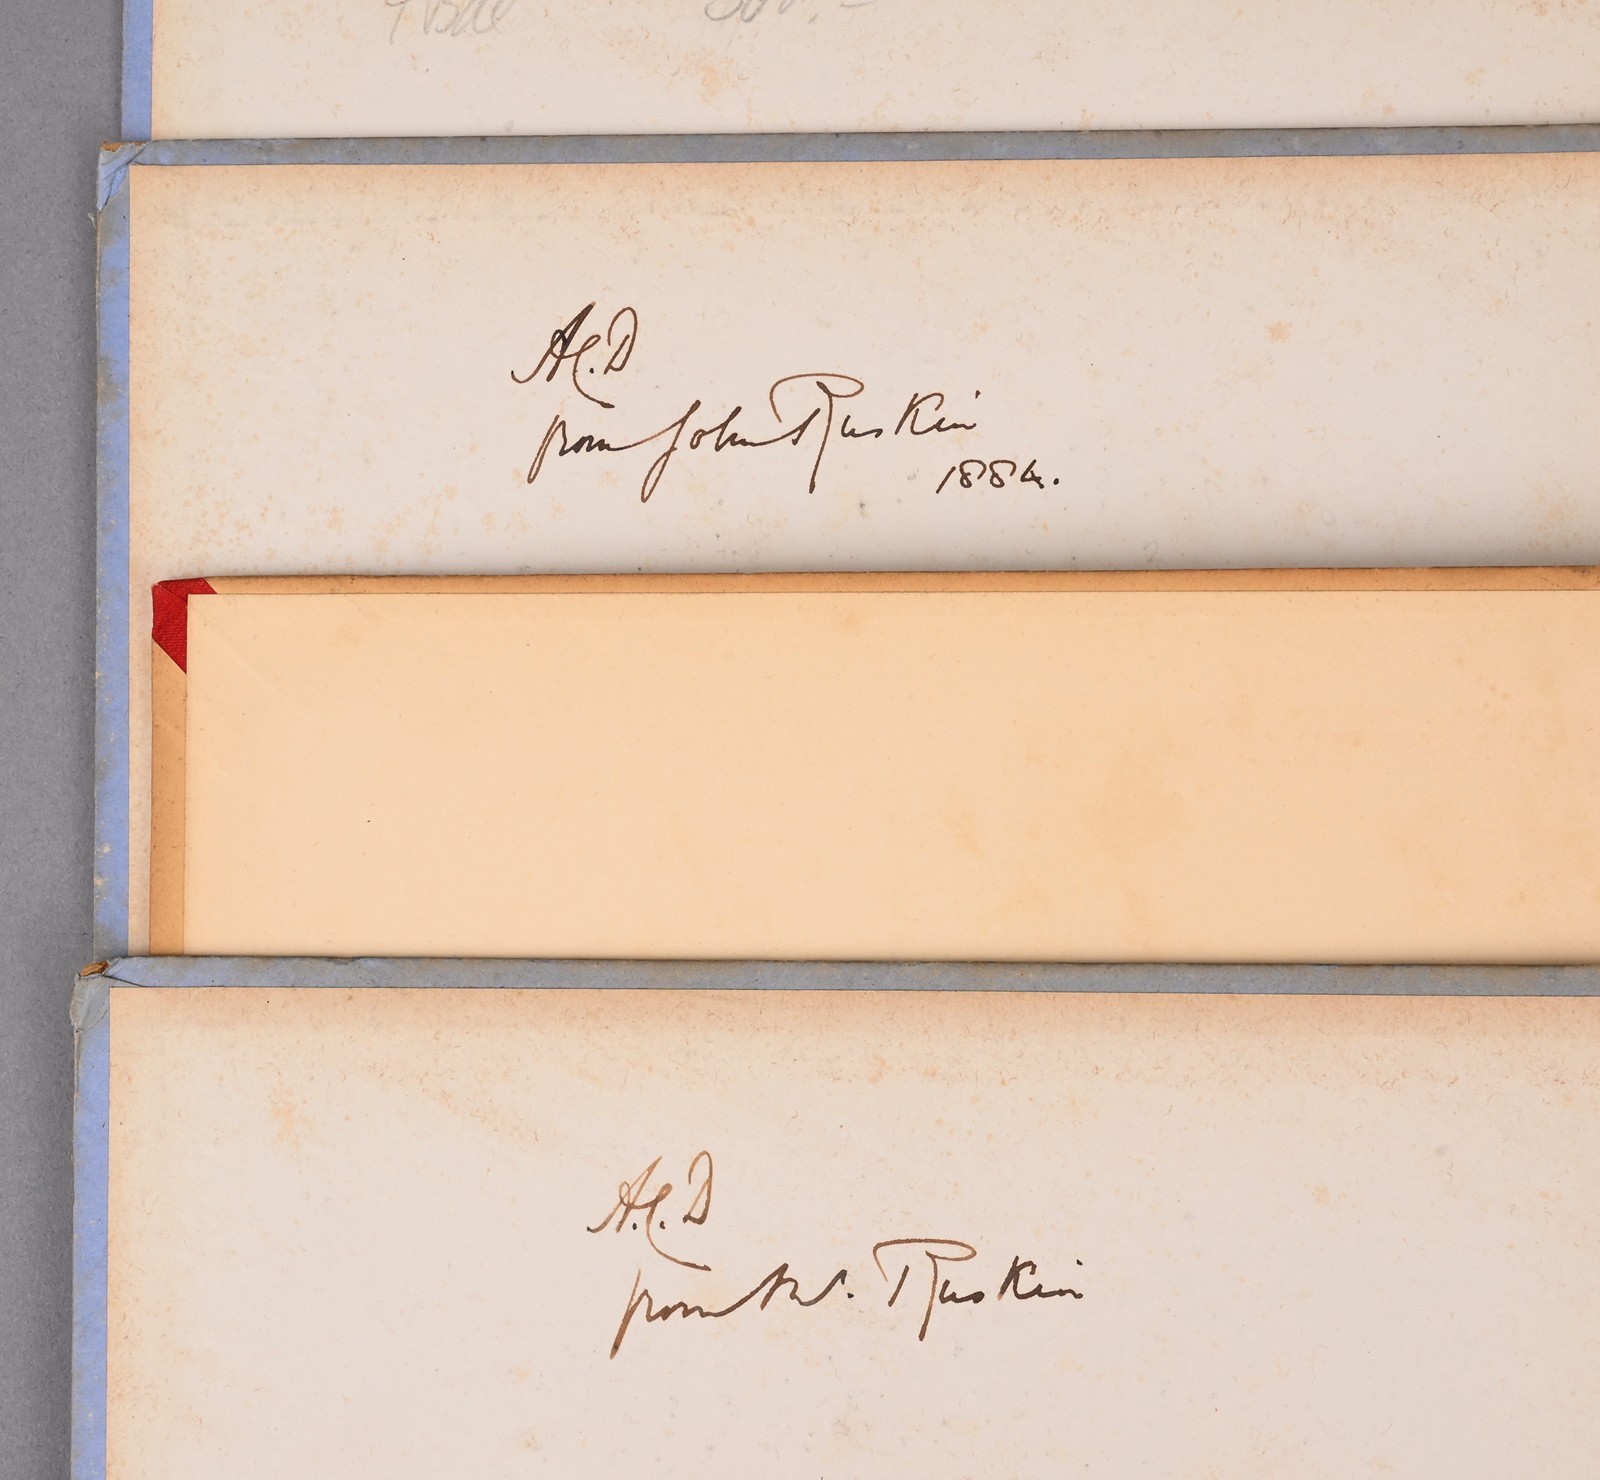 A.C.D
from John Ruskin
1884.
A.C.D
from Mr. Ruskin